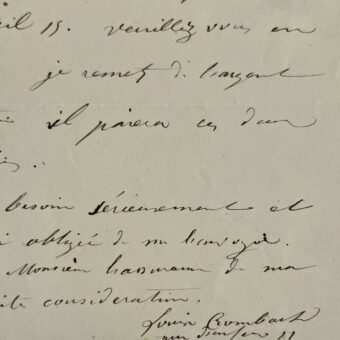 15. veuillez vous en
je remets de l'argent
il paiera ces deux
besoin sérieusement et
obligée de m'envoyer.
Monsieur l'assurance de ma
consideration.
Louis Crombach
rue